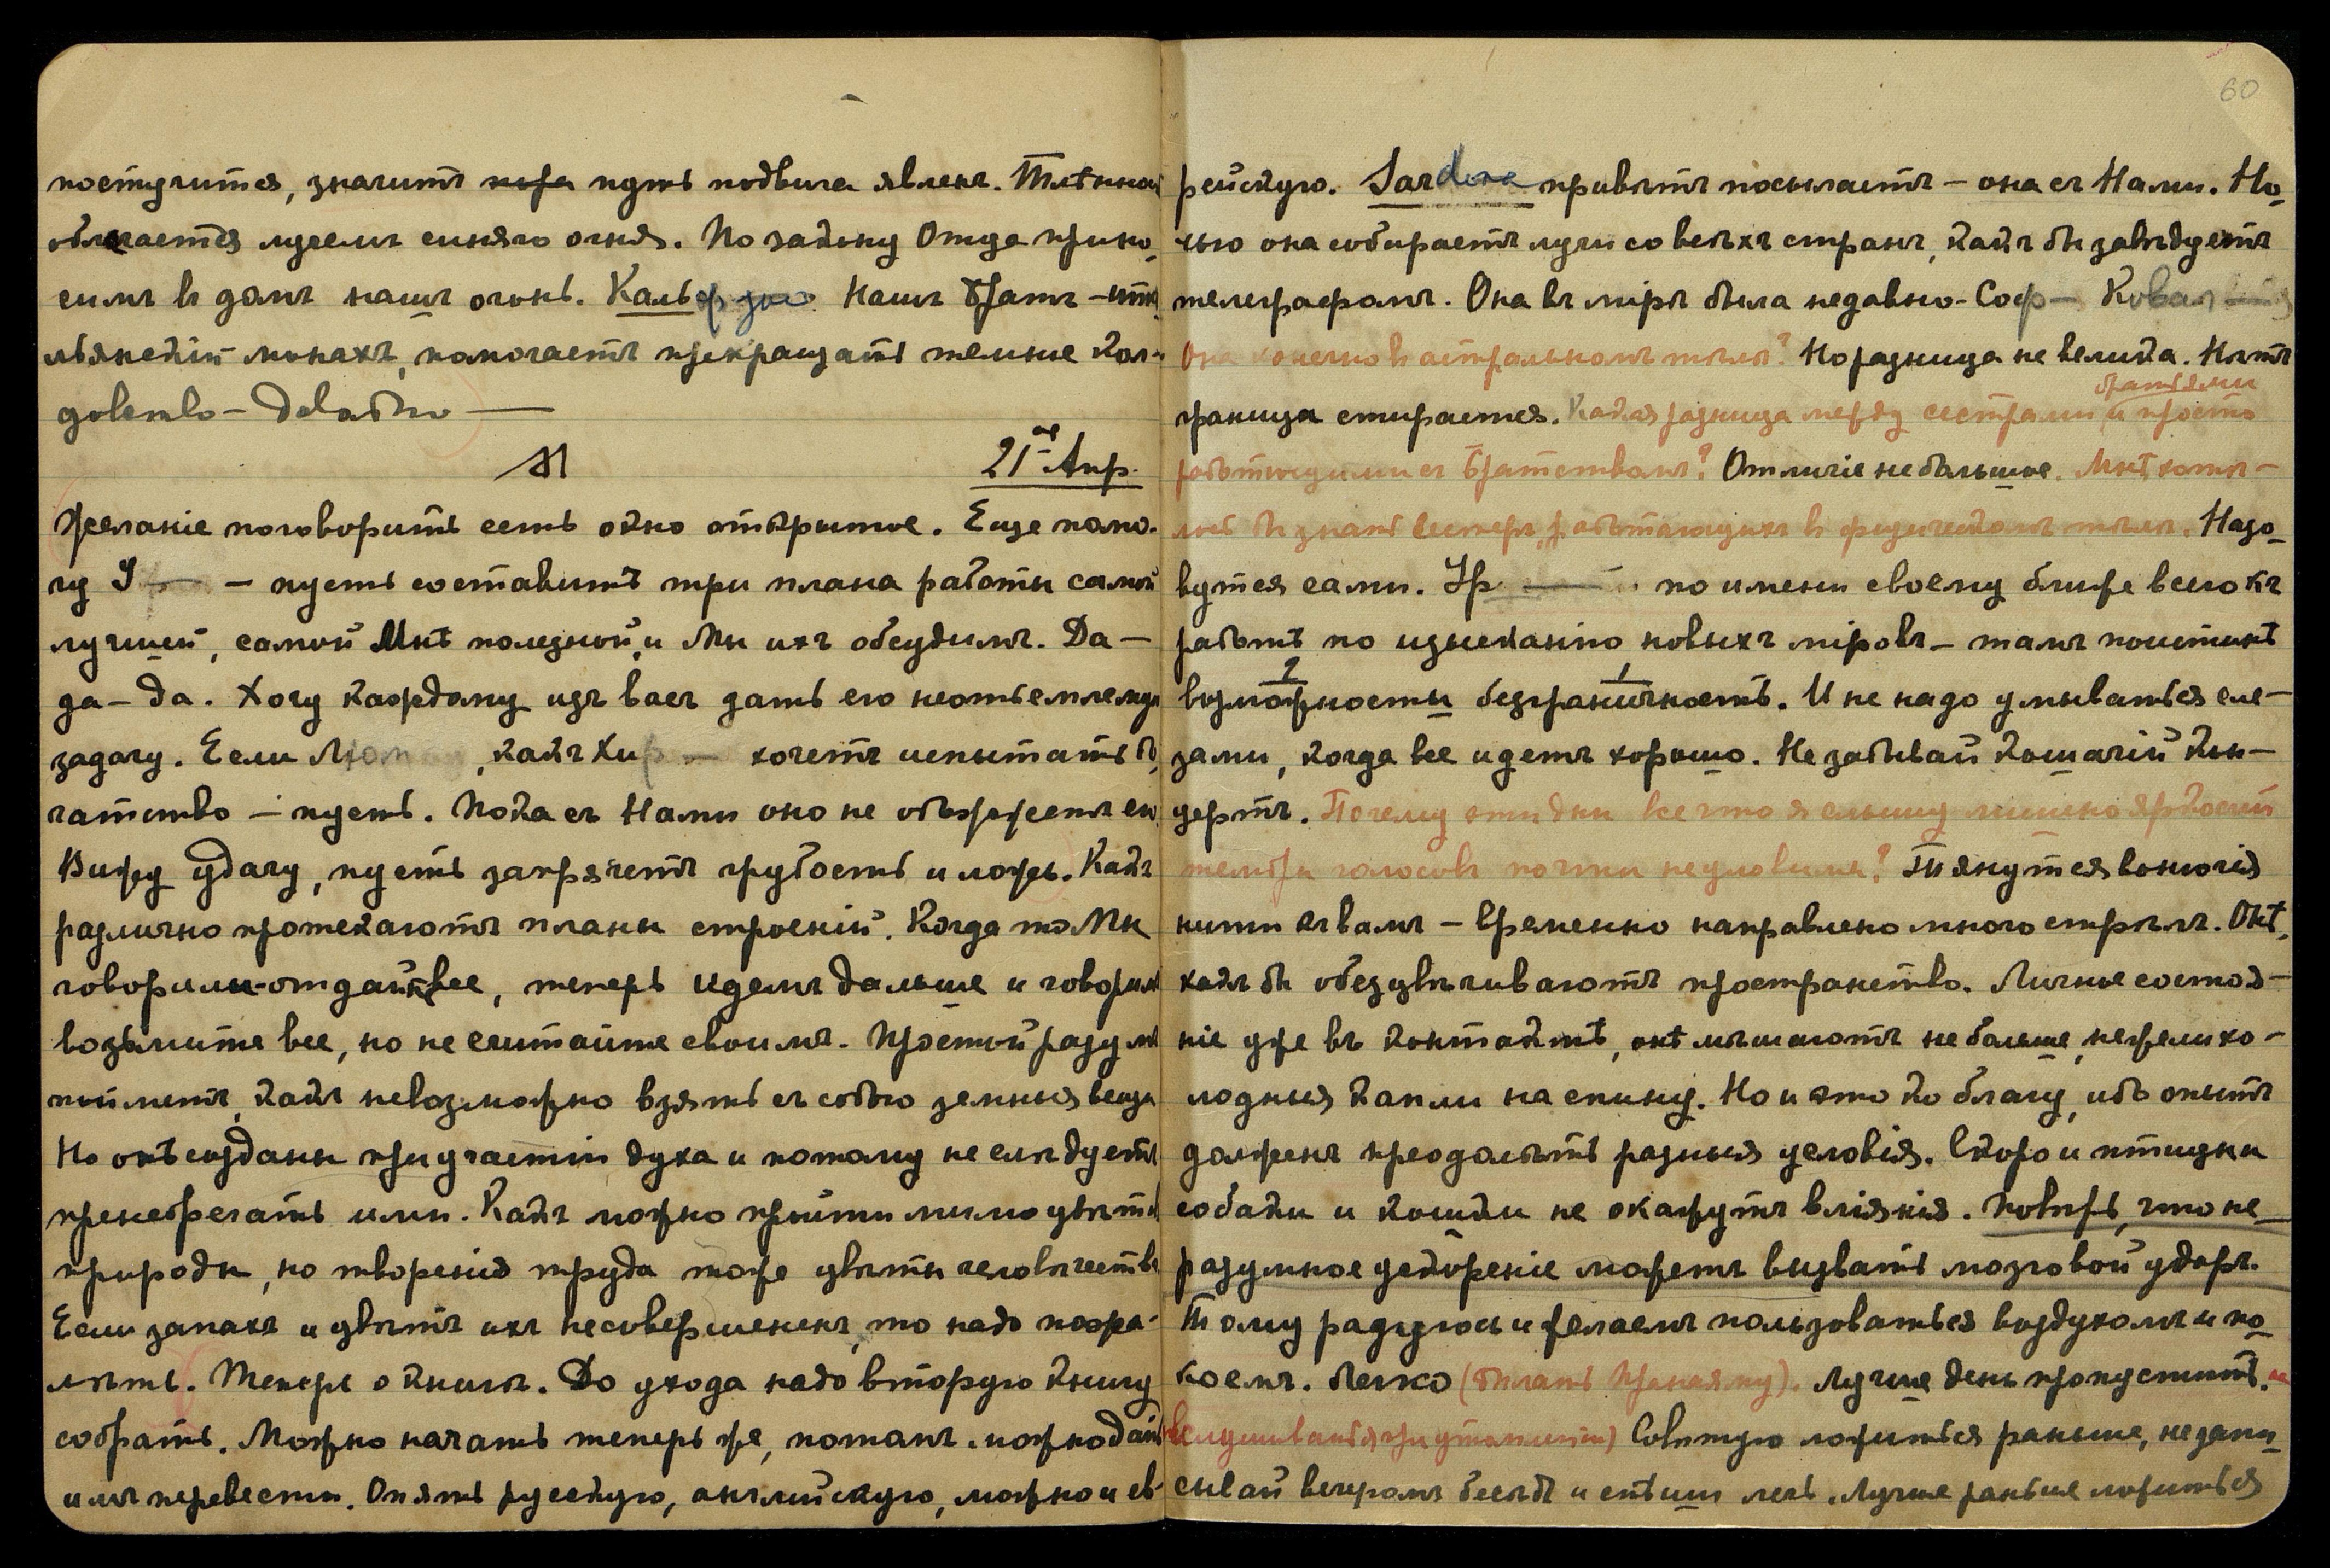 постучится, значитъ путь подвига явленъ. Тлѣнное
облекается лучемъ синяго огня. По закону Отца прино-
симъ в домъ нашъ огонь. Нашъ Братъ – ита-
льянскій монахъ, помогаетъ прекращать темные
М 21ое Апр.
Желаніе поговорить есть окно открытое. Еще помо-
гу – пусть составитъ три плана работы самой
лучшей, самой Мнѣ полезной, и Мы ихъ обсудимъ. Да –
да – да. Хочу каждому изъ васъ дать его неотъемлемую
задачу. Если какъ хочетъ испытать бо-
гатство – пусть. Пока съ Нами оно не обожжетъ его.
Вижу удачу, пусть запрячетъ грубость и ложь. Какъ
различно протекаютъ планы строеній. Когда то Мы
говорили – отдайте все, теперь идемъ дальше и говоримъ
возьмите все, но не считайте своимъ. Простой разумъ
пойметъ, какъ невозможно взять съ собою земныя вещи
Но онѣ созданы при участіи духа и потому не слѣдуетъ
пренебрегать ими. Какъ можно пройти мимо цвѣтовъ
природы, но творенія труда тоже цвѣты человѣчества
Если запахъ и цвѣтъ ихъ несовершененъ, то надо пожа-
лѣть. Теперь о книгѣ. До ухода надо вторую книгу
собрать. Можно начать теперь же, потомъ можно дать
имъ перевести. Опять русскую, англійскую, можно и ев-
60
рейскую. привѣтъ посылаетъ – она съ Нами. Но-
чью она собираетъ лучи со всѣхъ странъ, какъ бы завѣдуетъ
телеграфомъ. Она въ мірѣ была недавно – Соф –
Она конечно в астральномъ тѣлѣ? Но разница не велика. Нѣтъ
братьями
граница стирается. Какая разница между сестрами и просто
работающими съ Братствомъ? Отличіе небольшое. Мнѣ хотѣ –
лось бы знать сестеръ, работающихъ в физическомъ тѣлѣ. Назо-
вутся сами. Ур – по имени своему ближе всего къ
работѣ по изысканію новыхъ міровъ – тамъ поистинѣ
2 1
возможности безграничность. И не надо умываться сле –
зами, когда все идетъ хорошо. Не забывай кошачій кон –
цертъ. Почему эти дни все что я слышу лишено яркости
тембръ голосовъ почти неуловимъ? Тянутся вонючія
нити къ вамъ – временно направлено много стрѣлъ. Онѣ,
какъ бы обезцвѣчиваютъ пространство. Личные состоя –
ніе уже въ контактѣ, онѣ мѣшаютъ не больше, нежели хо –
лодныя капли на спину. Но и это ко благу, ибо опытъ
долженъ преодолѣть разныя условія. Скоро и птицы
собаки и кошки не окажутъ вліянія. Повѣрь, что не –
разумное ускореніе можетъ вызвать мозговой ударъ.
Тому радуюсь и желаемъ пользоваться воздухомъ и по-
коемъ. Легко (дѣлать Пранаяму). Лучше день пропустить. не
вслушиваться при утомленіи) Совѣтую ложиться раньше, не запи-
сывай вечеромъ бесѣдъ и спѣши лечь. Лучше раньше ложиться